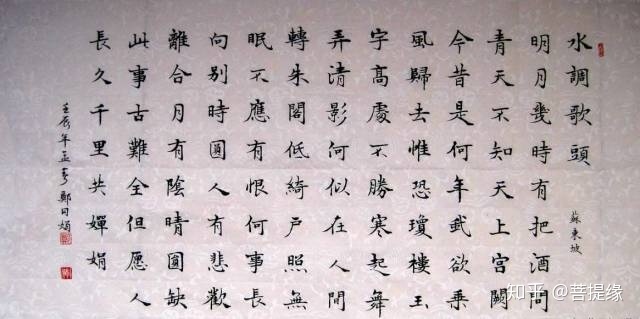 水調歌頭
蘇東坡
明月幾時有把酒問
青天不知天上宮闕
今昔是何年我欲乘
風歸去惟恐瓊樓玉
宇高處不勝寒起舞
弄清影何似在人間
轉朱閣低綺戶照無
眠不應有恨何事長
向別時圓人有悲歡
離合月有陰晴圓缺
此事古難全但愿人
長久千里共嬋娟
壬辰年孟春鄭娟
知乎 @菩提缘